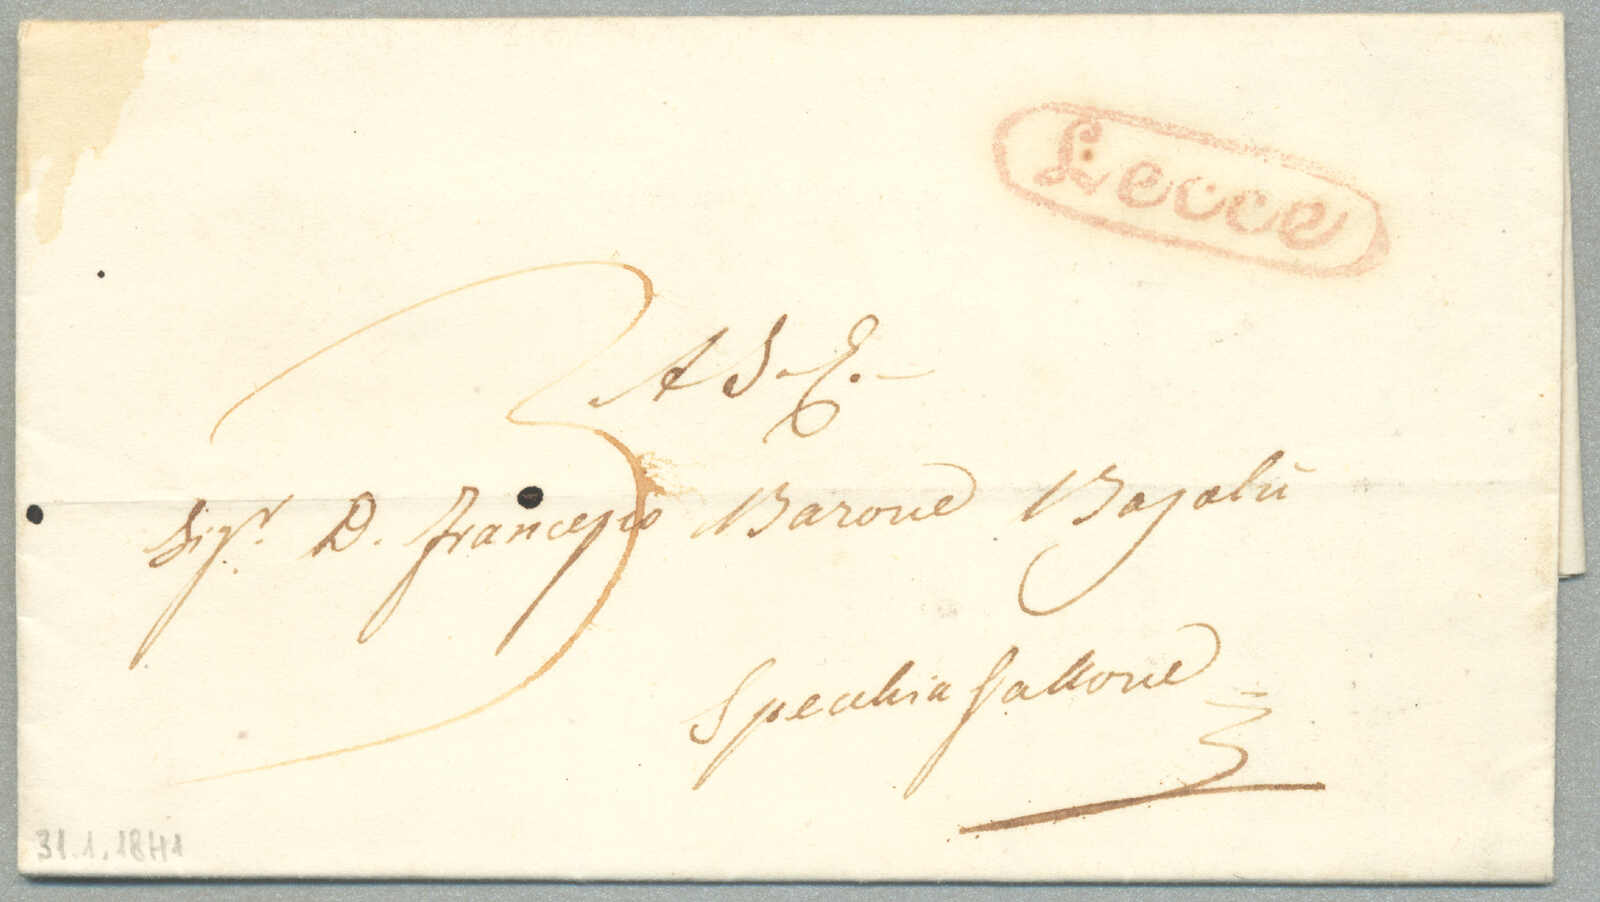 Lecce
3
A S. E.
Sigr. D. Francesco Barone
Specchia Gallone
31.1.1841